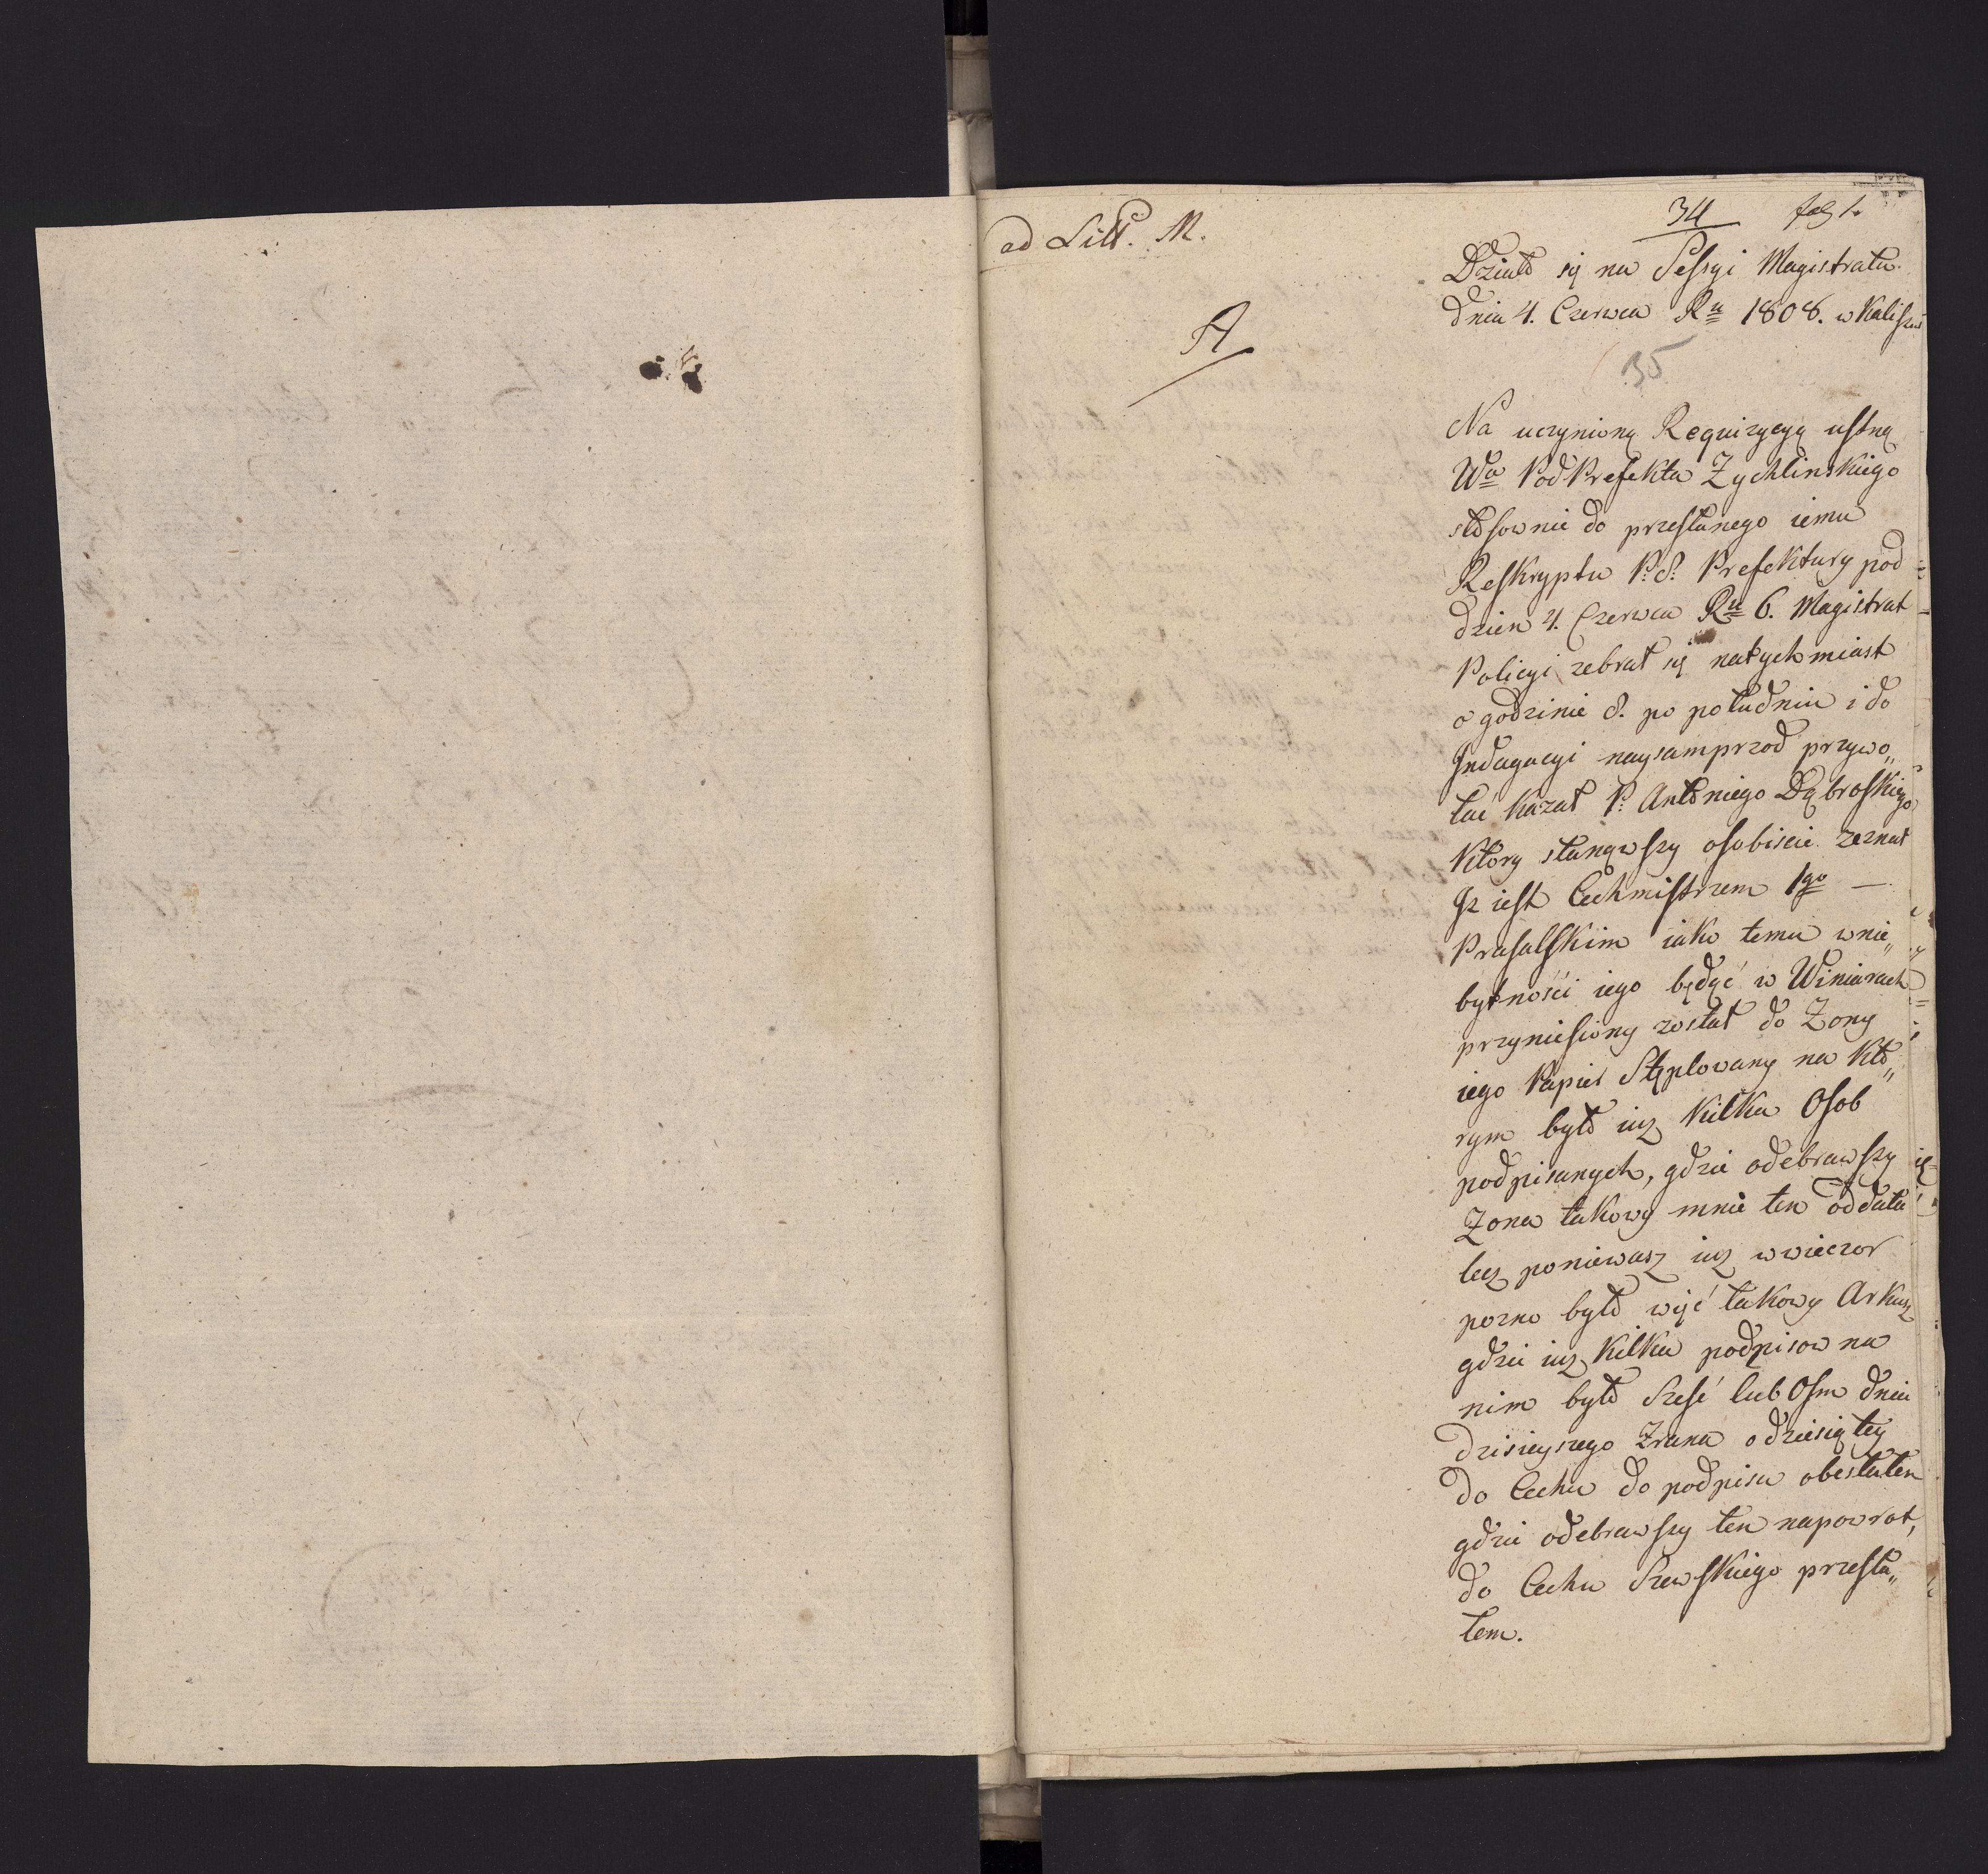 ad Litt. M.
34 fol 1.
A
Działo się na Sessyi Magistratu
dnia 4. Czerwca Ru 1808. w Kaliszu
35
Na uczynioną Requizycyą ustną
Wo Pod Prefekta Zychlinskiego
stosownie do przesłanego iemu
Reskryptu P: d: Prefektury pod
dzien 4. Czerwca Ru 6. Magistrat
Policyi zebrał się natychmiast
o godzinie 8. po południu i do
Indagacyi naysamprzod przywo„
łać kazał P: Antoniego Dąbroskiego
ktory stanąwszy osobiscie zeznał
Iz iest Cechmistrzem 1go —
Prasalskim iako temu wnie„
bytności iego będąć w Winiarach
przyniesiony został do Zony
iego Papier Stęplowany na kto„
rym było iuz kilka Osob
podpisanych, gdzie odebrawszy
Zona takowy mnie ten oddała
lecz poniewasz iuz wwieczor
pozno było więć takowy Arkusz
gdzie iuz kilka podpisow na
nim było Szesć lub Osm dnia
dzisieyszego Zrana odziesiątey
do Cechu do podpisu obesłałem
gdzie odebrawszy ten napowrot,
do Cechu Szewskiego przesła„
łem.